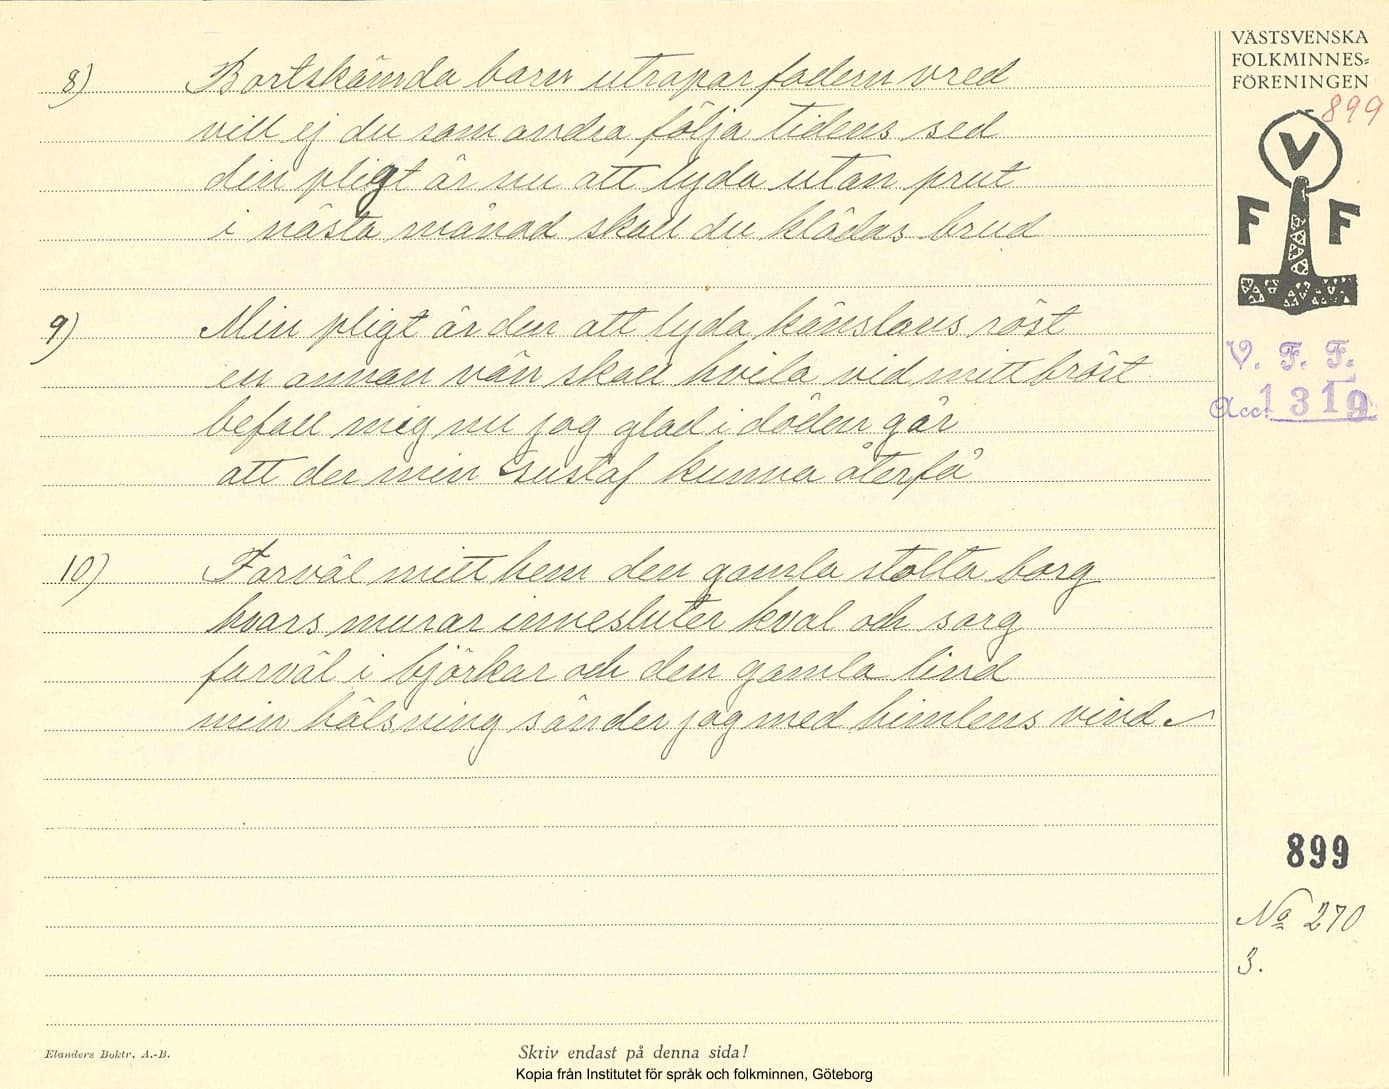 VÄSTSVENSKA
FOLKMINNES=
FÖRENINGEN
899
V
F F
V. F. F.
Acc. 1319
8) Bortskämda barn utropar fadern vred
vill ej du som andra följa tidens sed
din pligt är nu att lyda utan prut
i nästa månad skall du klädas brud
9) Min pligt är den att lyda känslans röst
en annan vän skall hvila vid mitt bröst
befall mig nu jag glad i döden går
att der min Gustaf kunna återfå
10) Farväl mitt hem den gamla stolta borg
hvars murar innesluter kval och sorg
farväl i björkar och den gamla lind
min hälsning sänder jag med himlens vind.
899
No 270
3.
Elanders Boktr. A.-B.
Skriv endast på denna sida!
Kopia från Institutet för språk och folkminnen, Göteborg